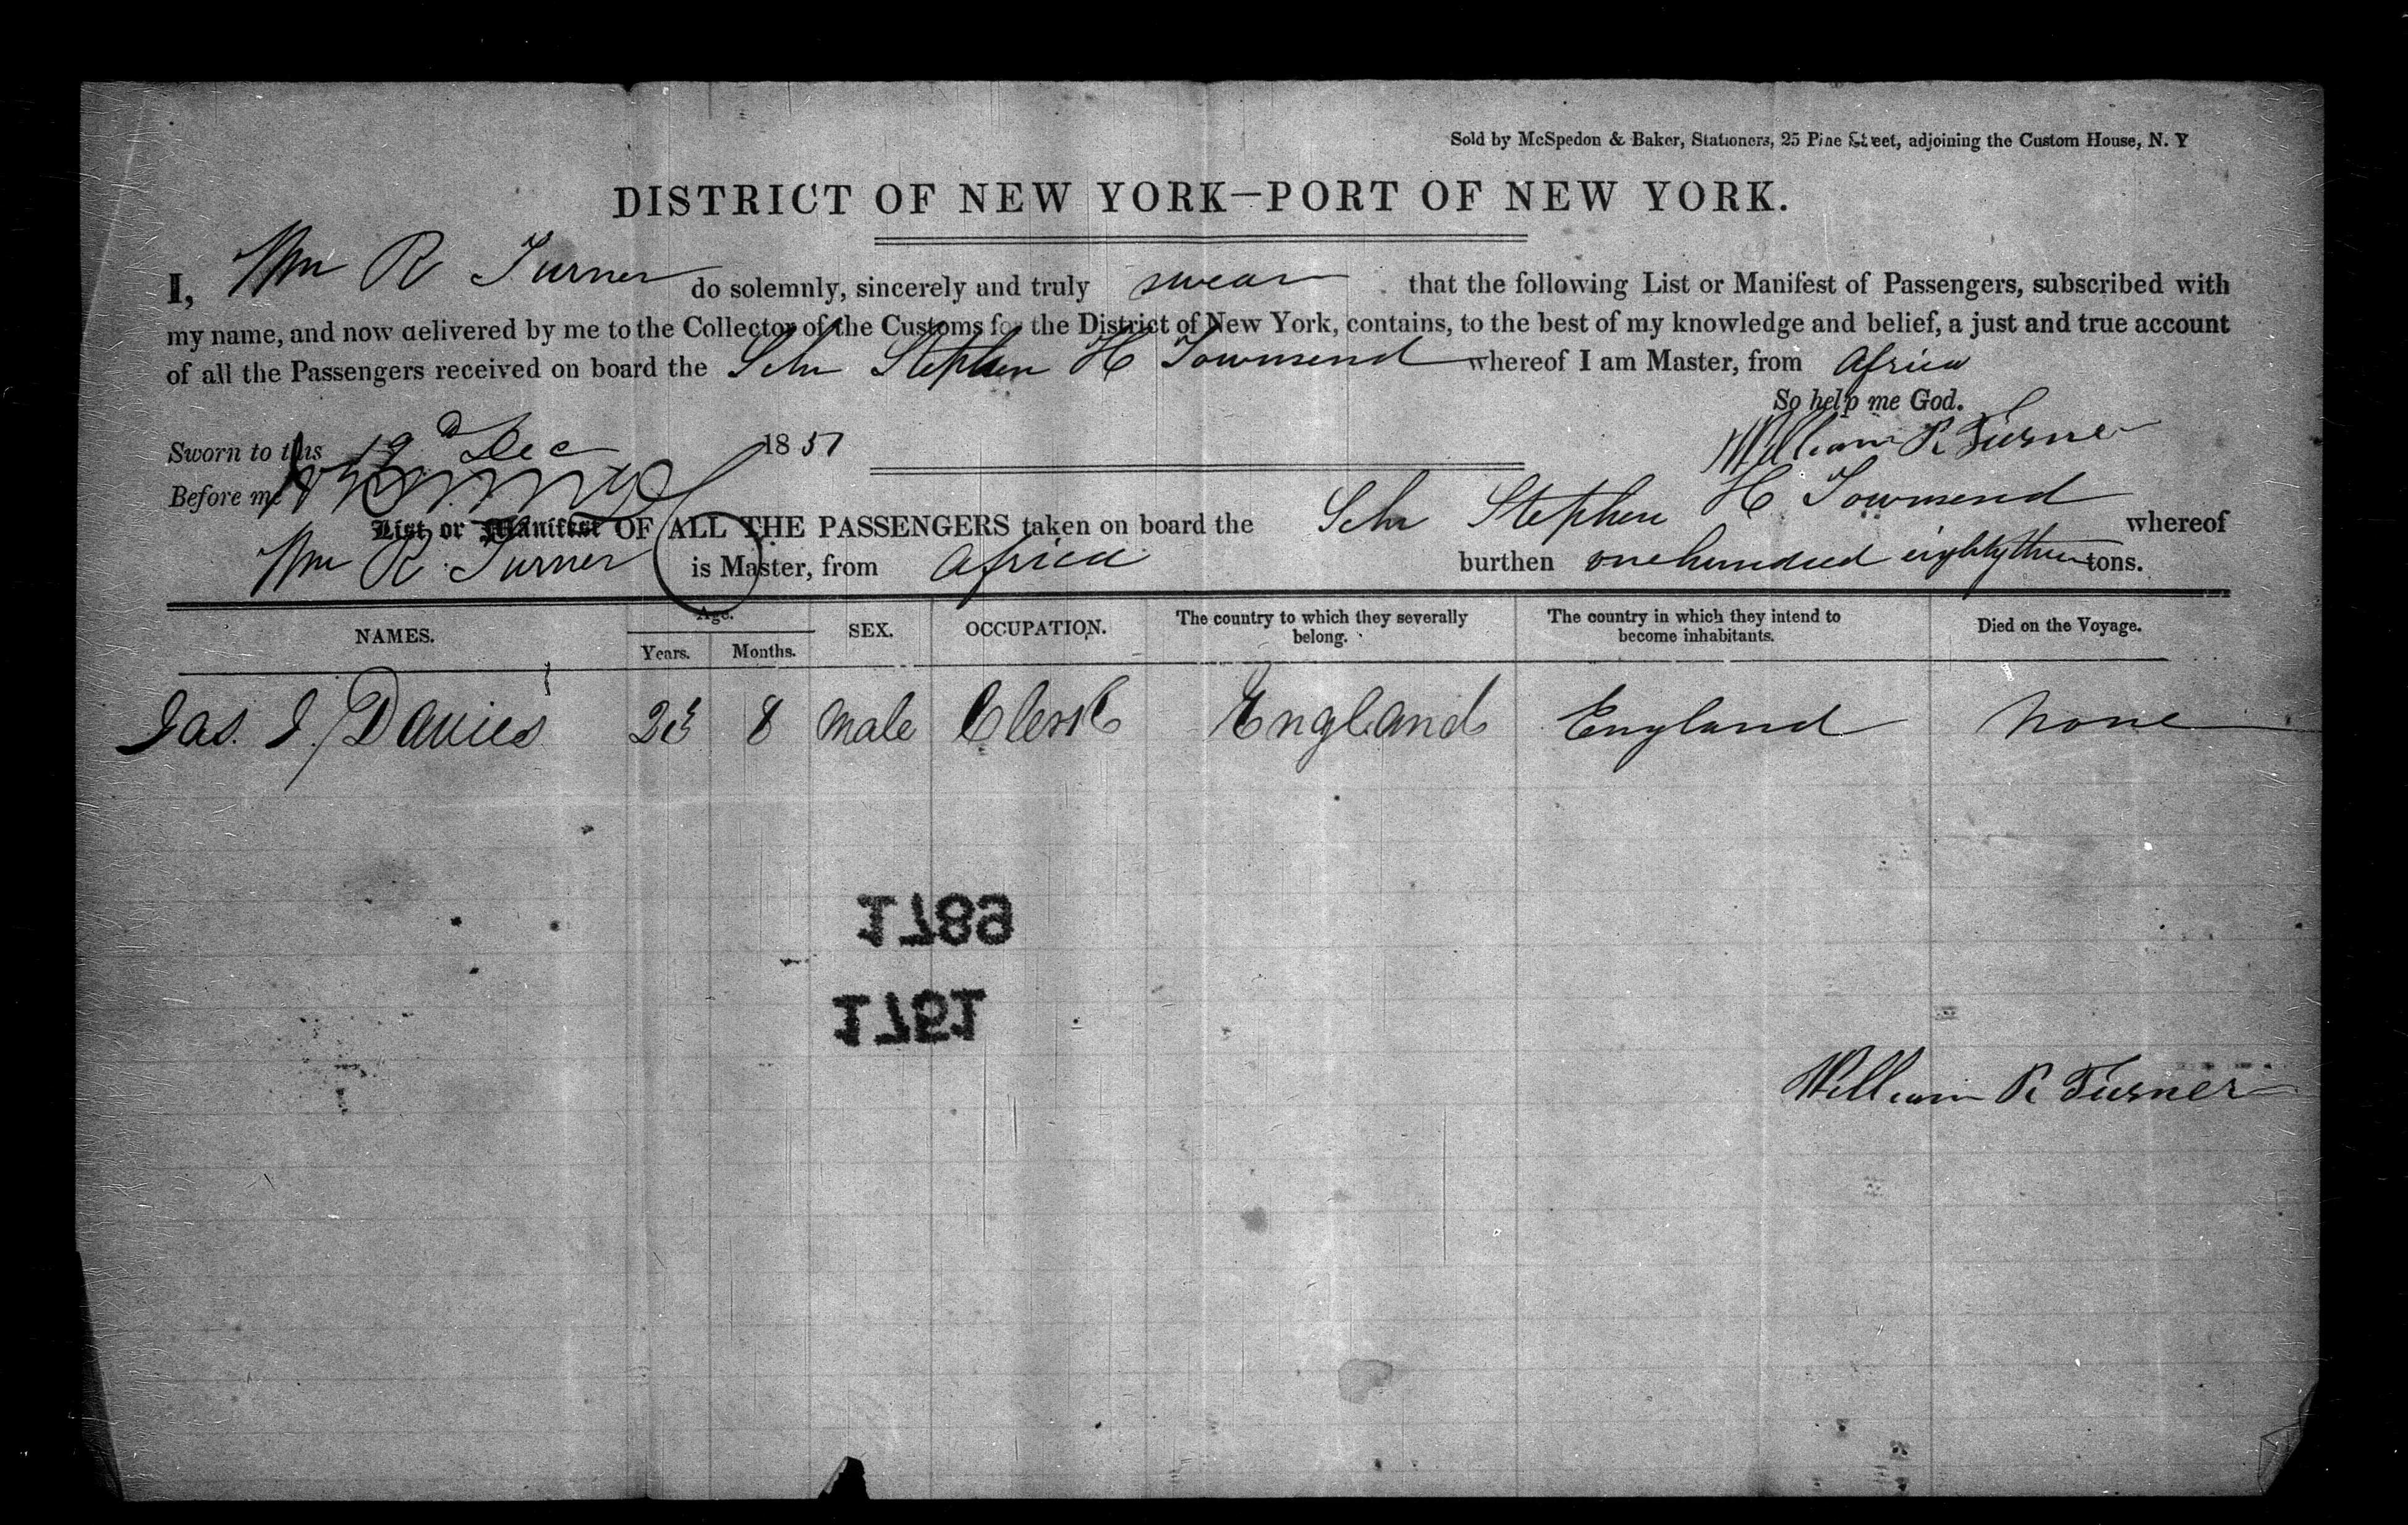 Sold by McSpedon & Baker, Stationers, 25 Pine Street, adjoining the Custom House, N. Y
DISTRICT OF NEW YORK—PORT OF NEW YORK.
I, Wm R Turner do solemnly, sincerely and truly swear that the following List or Manifest of Passengers, subscribed with
my name, and now delivered by me to the Collector of the Customs for the District of New York, contains, to the best of my knowledge and belief, a just and true account
of all the Passengers received on board the Schr Stephen H Townsend whereof I am Master, from Africa
So help me God.
Sworn to this 19 Dec 1851 William R Turner
Before me
List or Manifest OF ALL THE PASSENGERS taken on board the Schr Stephen H Townsend whereof
Wm R Turner is Master, from Africa burthen one hundred eighty three tons.
NAMES. Age. Years. Months. SEX. OCCUPATION. The country to which they severally belong. The country in which they intend to become inhabitants. Died on the Voyage.
Jas. J. Davies 23 8 Male Clerk England England None
1789
1751
William R Turner